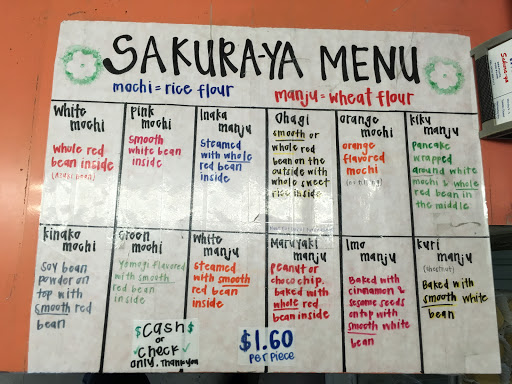 SAKURA-YA MENU
mochi = rice flour
manju = wheat flour
White
mochi
whole red
bean inside
(Azuki bean)
Pink
mochi
smooth
white bean
inside
Inaka
manju
Steamed
with whole
red bean
inside
Ohagi
smooth or
whole red
bean on the
outside with
whole sweet
rice inside
orange
mochi
orange
flavored
mochi
(no filling)
Kiku
manju
pancake
wrapped
around white
mochi & whole
red bean in
the middle
kinako
mochi
Soy bean
powder on
top with
smooth red
bean
Green
mochi
Yomogi flavored
with smooth
red bean
inside
White
manju
steamed
with smooth
red bean
inside
Maruyaki
manju
peanut or
choco chip.
baked with
whole red
bean inside
Imo
manju
Baked with
cinnamon &
sesame seeds
on top with
smooth white
bean
Kuri
manju
(chestnut)
Baked with
smooth white
bean
$Cash$
or
✓Check✓
only. Thank you
$1.60
per piece